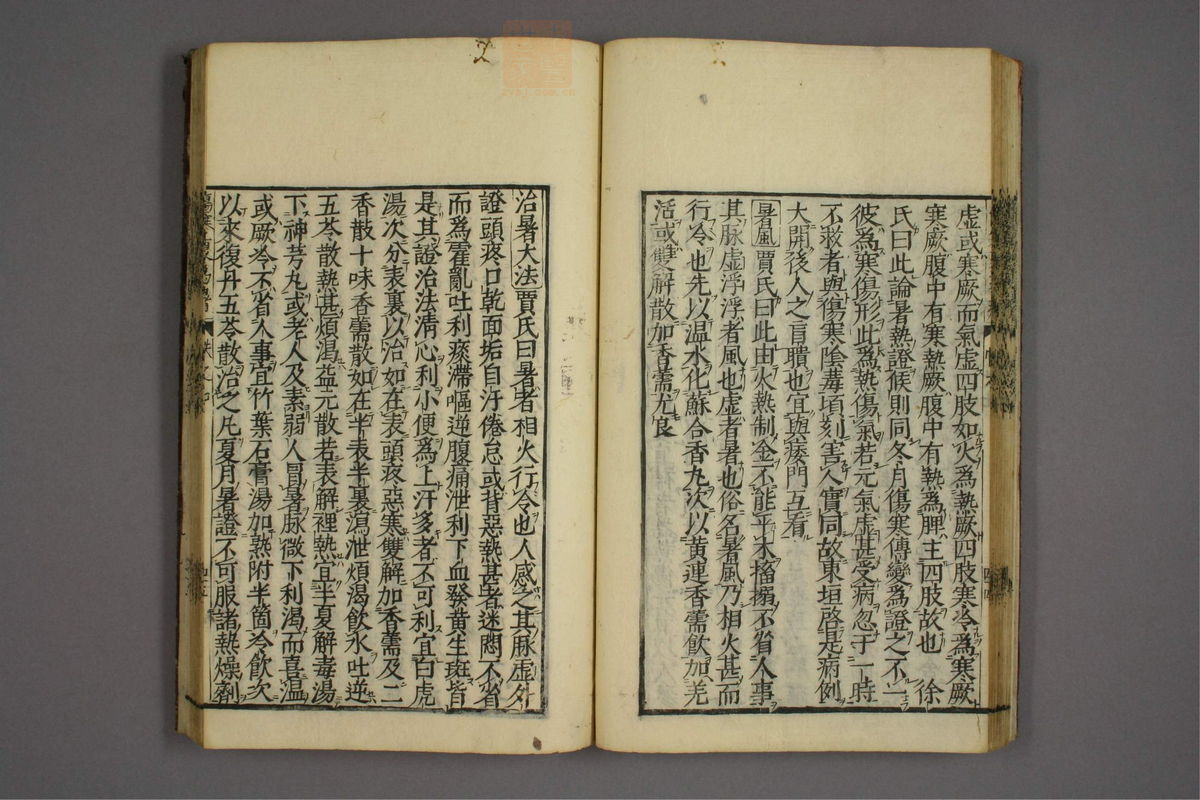 虛或寒厥而氣虛四肢如火爲熱厥四肢寒冷爲寒厥
寒厥腹中有寒熱厥腹中有熱爲脾主四肢故也　徐
氏曰此論暑熱證候則同冬月傷寒傳變爲證之不一
彼爲寒傷形此爲熱傷氣若元氣虛甚受病忽于一時
不救者與傷寒陰毒頃刻害人實同故東垣啓是病例
大開後人之盲聵也宜與痿門互看
暑風賈氏曰此由火熱制金不能平木搐搦不省人事
其脉虛浮浮者風也虛者暑也俗名暑風乃相火甚而
行令也先以温水化蘇合香丸次以黄連香薷飲加羌
活或雙解散加香薷尤良
治暑大法賈氏曰暑者相火行令也人感之其脉虛外
證頭疼口乾面垢自汗倦怠或背惡熱甚者迷悶不省
而爲霍亂吐利痰滯嘔逆腹痛泄利下血發黄生斑皆
是其證治法淸心利小便爲上汗多者不可利宜白虎
湯次分表裏以治如在表頭疼惡寒雙解加香薷及二
香散十味香薷散如在半表半裏瀉泄煩渴飲水吐逆
五苓散熱甚煩渴益元散若表解裡熱宜半夏解毒湯
下神芳丸或老人及素弱人冒暑脉微下利渴而喜温
或厥冷不省人事宜竹葉石膏湯加熟附半箇冷飲次
以來復丹五苓散治之凡夏月暑證不可服諸熱燥劑